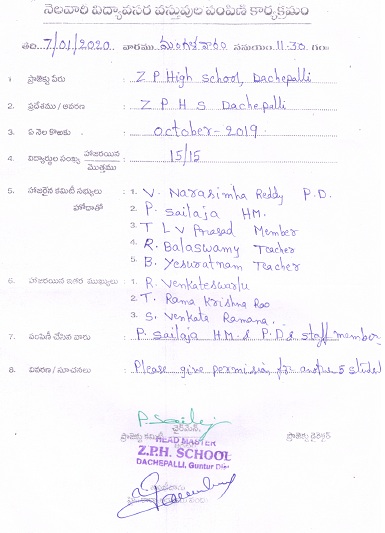 నెలవారీ విద్యావసర వస్తువుల పంపిణీ కార్యక్రమం
తేది. 7/01/2020 వారము మంగళవారం సమయం 11-30 గం॥
1. ప్రాజెక్టు పేరు : Z P High School, Dachepalli
2. ప్రదేశము / ఆవరణ : Z P H S Dachepalli
3. ఏ నెల కొఱకు : october - 2019
4. విద్యార్థుల సంఖ్య హాజరయిన / మొత్తము : 15/15
5. హాజరైన కమిటీ సభ్యులు : 1. V. Narasimha Reddy P.D.
హోదాతో 2. P. Sailaja HM.
3. T L V Prasad Member
4. R. Balaswamy Teacher
5. B. Yesuratnam Teacher
6. హాజరయిన ఇతర ముఖ్యులు : 1. R. Venkateswarlu
2. T. Rama Krishna Rao
3. S. Venkata Ramana
7. పంపిణీ చేసిన వారు : P. Sailaja HM & P.D & staff member
8. వివరణ / సూచనలు : Please give permission for another 5 studen
P. Sailaja
చైర్మన్,
ప్రాజెక్టు కమిటీ ప్రాజెక్టు డైరెక్టర్
HEAD MASTER
Z.P.H. SCHOOL
DACHEPALLI, Guntur Dist